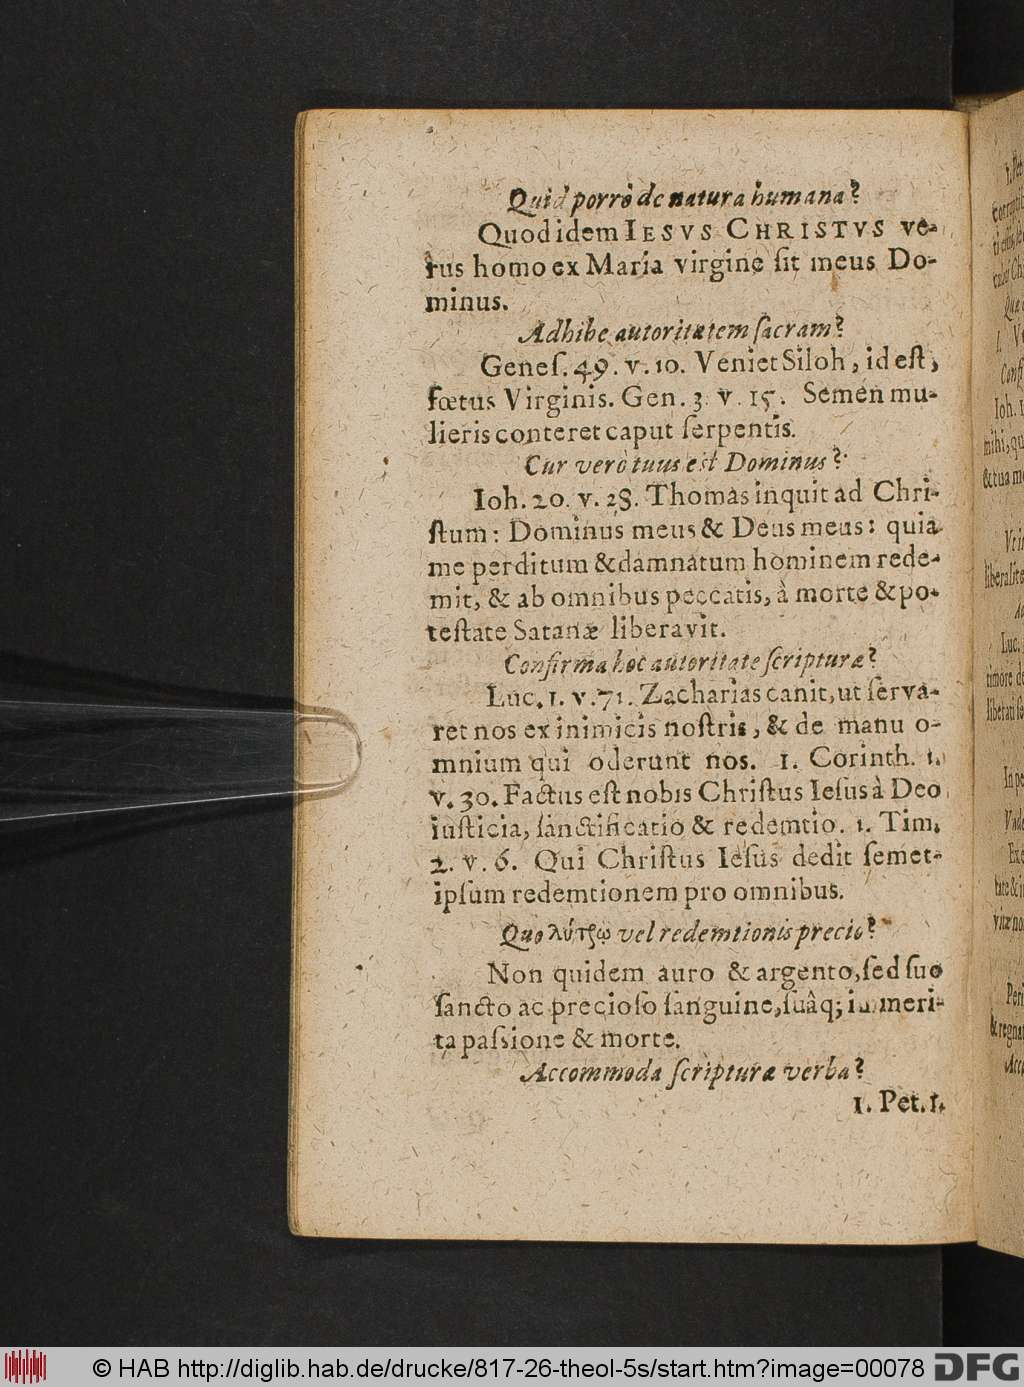 Quid porrò de natura humana?
Quod idem IESVS CHRISTVS ve-
rus homo ex Maria virgine ſit meus Do-
minus.
Adhibe autoritatem ſacram?
Geneſ. 49. v. 10. Veniet Siloh, id eſt,
fœtus Virginis. Gen. 3. v. 15. Semen mu-
lieris conteret caput ſerpentis.
Cur verò tuus est Dominus?
Ioh. 20. v. 28. Thomas inquit ad Chri-
ſtum: Dominus meus & Deus meus: quia
me perditum & damnatum hominem rede-
mit, & ab omnibus peccatis, à morte & po-
teſtate Satanæ liberavit.
Confirma hoc autoritate ſcripturæ?
Luc. 1. v. 71. Zacharias canit, ut ſerva-
ret nos ex inimicis noſtris, & de manu o-
mnium qui oderunt nos. 1. Corinth. 1.
v. 30. Factus eſt nobis Chriſtus Ieſus à Deo
iuſticia, ſanctificatio & redemtio. 1. Tim.
2. v. 6. Qui Chriſtus Ieſus dedit ſemet-
ipſum redemtionem pro omnibus.
Quo λύτρῳ vel redemtionis precio?
Non quidem auro & argento, ſed ſuo
ſancto ac precioſo ſanguine, ſuâq; immeri-
ta paſsione & morte.
Accommoda ſcripturæ verba?
1. Pet. 1.
© HAB http://diglib.hab.de/drucke/817-26-theol-5s/start.htm?image=00078
DFG